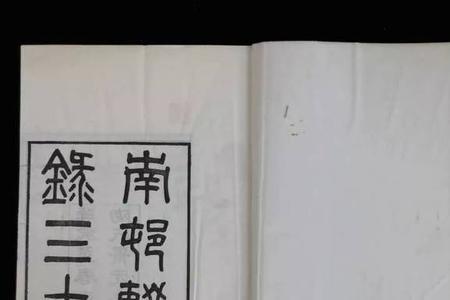 南邨
錄三十